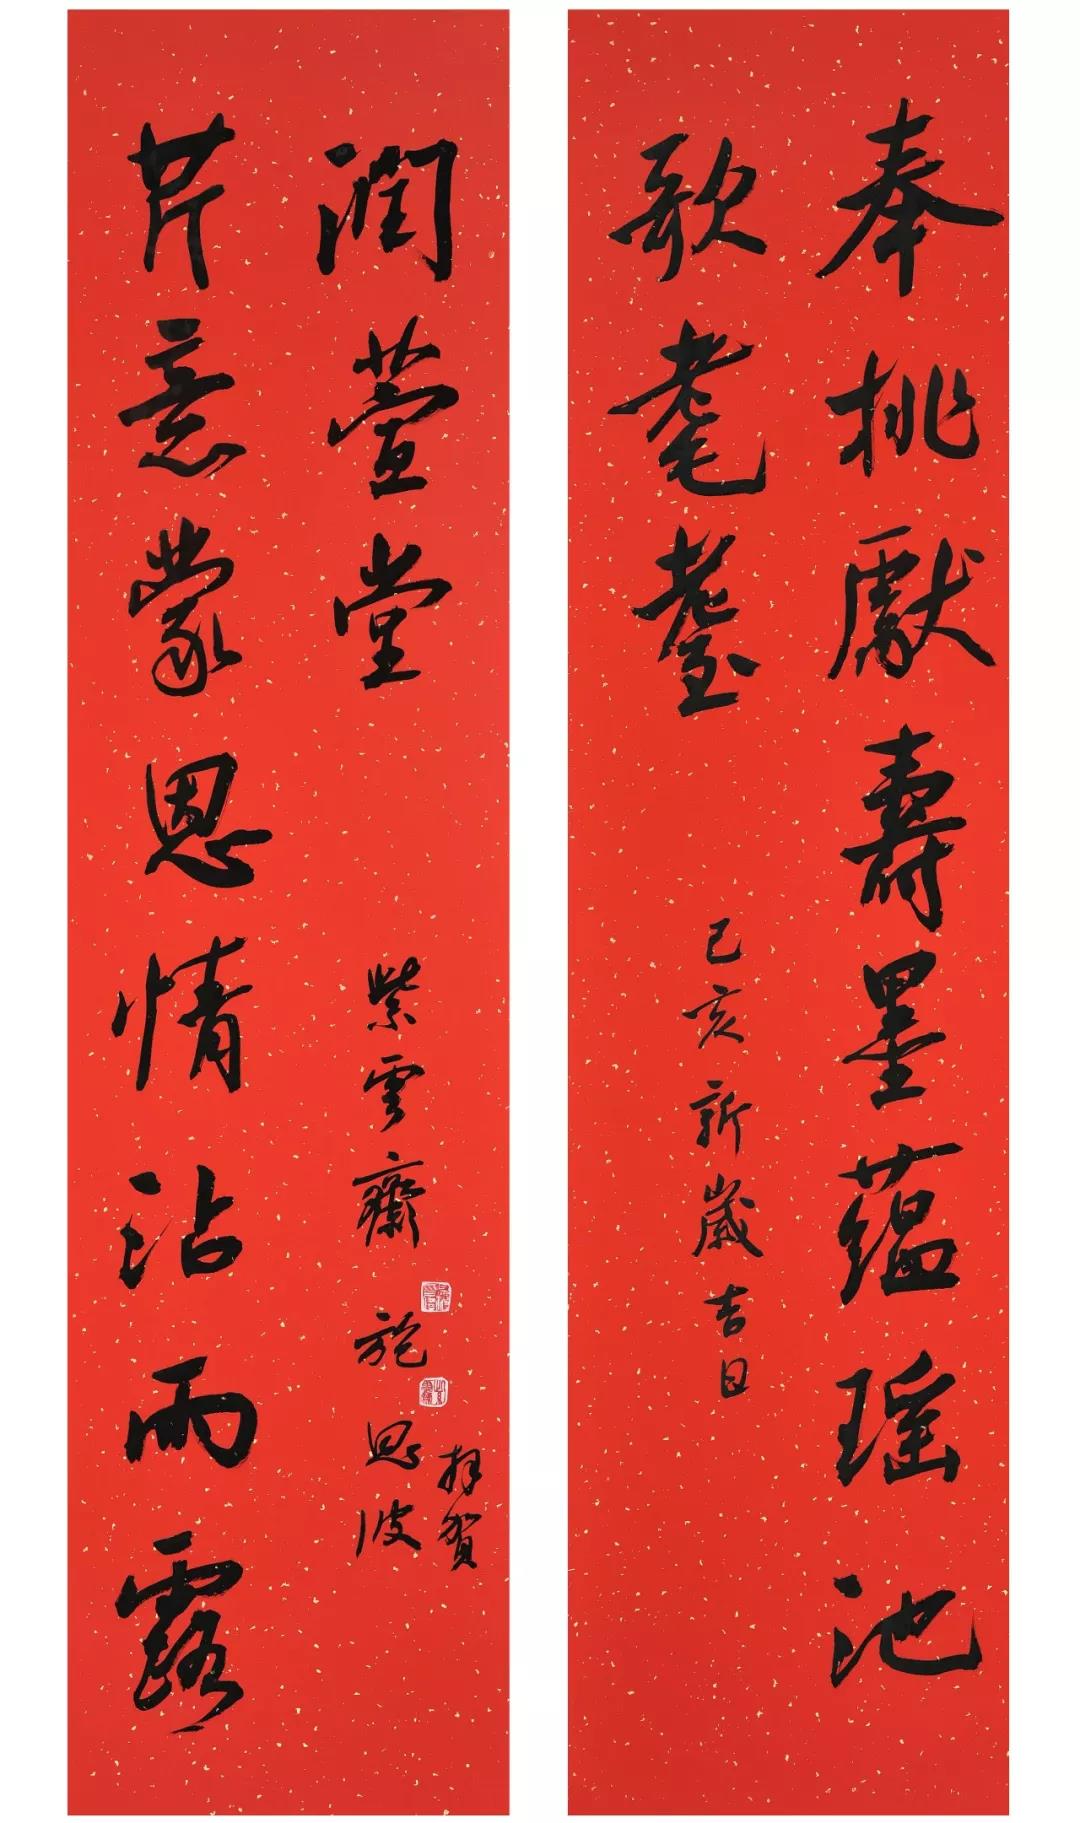 奉桃獻壽墨蘊瑶池
歌耄耋
己亥新歲吉日
芹意蒙恩情沾雨露
潤萱堂
紫雲齋施恩波
拜賀